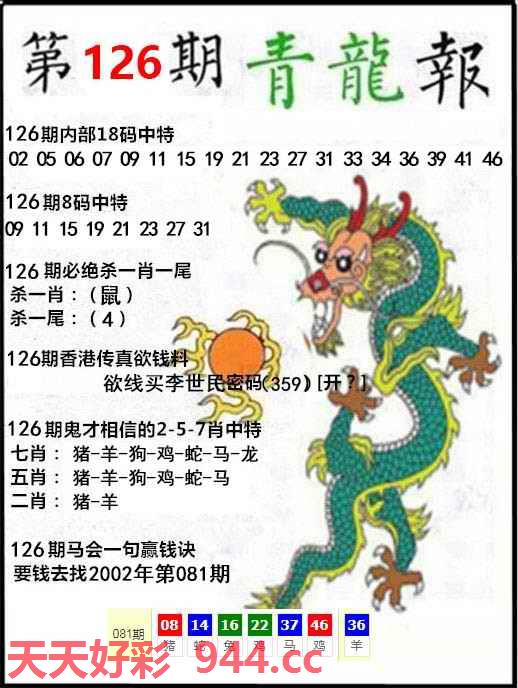 第126期 青龍報
126期内部18码中特
02 05 06 07 09 11 15 19 21 23 27 31 33 34 36 39 41 46
126期8码中特
09 11 15 19 21 23 27 31
126期必绝杀一肖一尾
杀一肖：(鼠)
杀一尾：(4)
126期香港传真欲钱料
欲线买李世民密码(359)[开?]
126期鬼才相信的2-5-7肖中特
七肖：猪-羊-狗-鸡-蛇-马-龙
五肖：猪-羊-狗-鸡-蛇-马
二肖：猪-羊
126期马会一句赢钱诀
要钱去找2002年第081期
081期 08 14 16 22 37 46 36
猪 蛇 兔 鸡 马 鸡 羊
天天好彩 944.cc